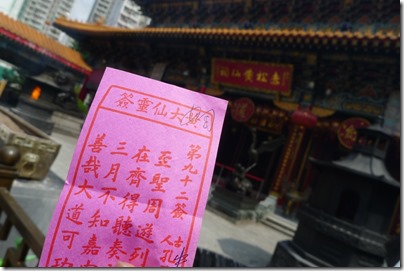 赤松黃仙祠
大仙靈簽
第九十二簽
古人 孔
至聖周遊列
在齊得聽奏
三月不知嘉
善哉大道可